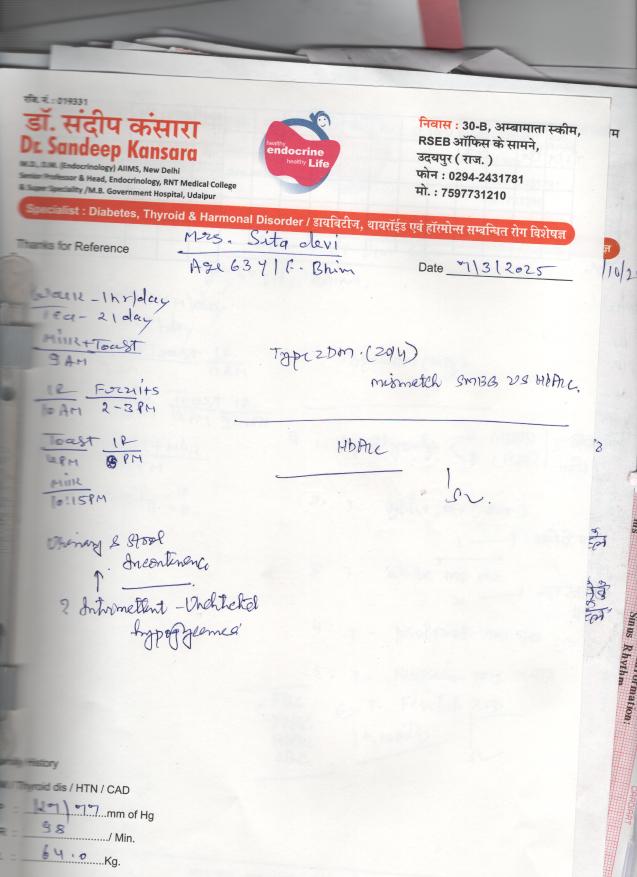 रजि. नं. : 019331
डॉ. संदीप कंसारा
Dr. Sandeep Kansara
M.D., D.M. (Endocrinology) AIIMS, New Delhi
Senior Professor & Head, Endocrinology, RNT Medical College
& Super Speciality /M.B. Government Hospital, Udaipur
healthy
endocrine
healthy Life
निवास : 30-B, अम्बामाता स्कीम,
RSEB ऑफिस के सामने,
उदयपुर ( राज. )
फोन : 0294-2431781
मो. : 7597731210
Specialist : Diabetes, Thyroid & Harmonal Disorder / डायबिटीज, थायरॉईड एवं हॉरमोन्स सम्बन्धित रोग विशेषज्ञ
Thanks for Reference
Mrs. Sita devi
Age 63 Y / F. Bhim
Date 7/3/2025
- 1 hr/day
Tea - 2/day
Milk + Toast
9 AM
10 AM 2-3 PM
Toast
4 PM 8 PM
Milk
10:15 PM
Type 2 DM. (2014)
mismatch SMBG VS HbA1c.
HbA1c
Urinary & Stool
Incontinence
↑
? Intermettent -
hypoglycemea
Family History
Thyroid dis / HTN / CAD
/77 mm of Hg
98 / Min.
64.0 Kg.
Sinus Rhythm